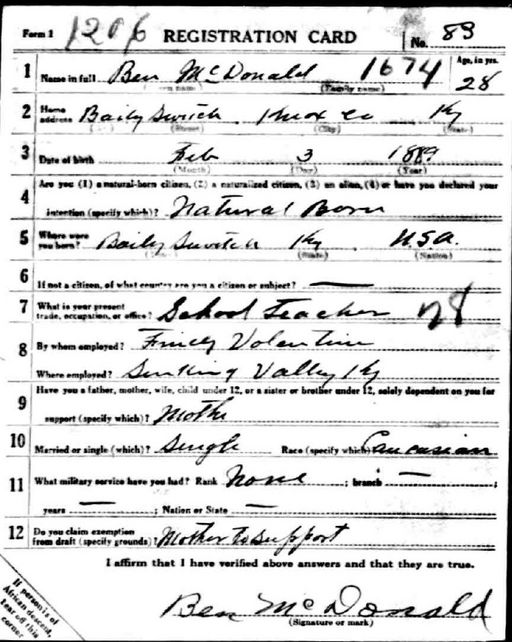 Form 1 1206 REGISTRATION CARD No. 89
1 Name in full Ben McDonald 1674 Age, in yrs.
(Family name) 28
2 Home address Baily Switch Knox Co Ky
(Street) (City) (State)
3 Date of birth Feb 3 1889
(Month) (Day) (Year)
4 Are you (1) a natural-born citizen, (2) a naturalized citizen, (3) an alien, (4) or have you declared your
intention (specify which)? Natural Born
5 Where were you born? Baily Switch Ky U.S.A.
(State) (Nation)
6 If not a citizen, of what country are you a citizen or subject? —
7 What is your present trade, occupation, or office? School Teacher 28
8 By whom employed? Valentine
Where employed? Sinking Valley Ky
9 Have you a father, mother, wife, child under 12, or a sister or brother under 12, solely dependent on you for
support (specify which)? Mother
10 Married or single (which)? Single Race (specify which)? Caucasian
11 What military service have you had? Rank None ; branch — ;
years — ; Nation or State —
12 Do you claim exemption from draft (specify grounds)? Mother to support
I affirm that I have verified above answers and that they are true.
Ben McDonald
(Signature or mark)
If person is of
African descent,
tear off this
corner